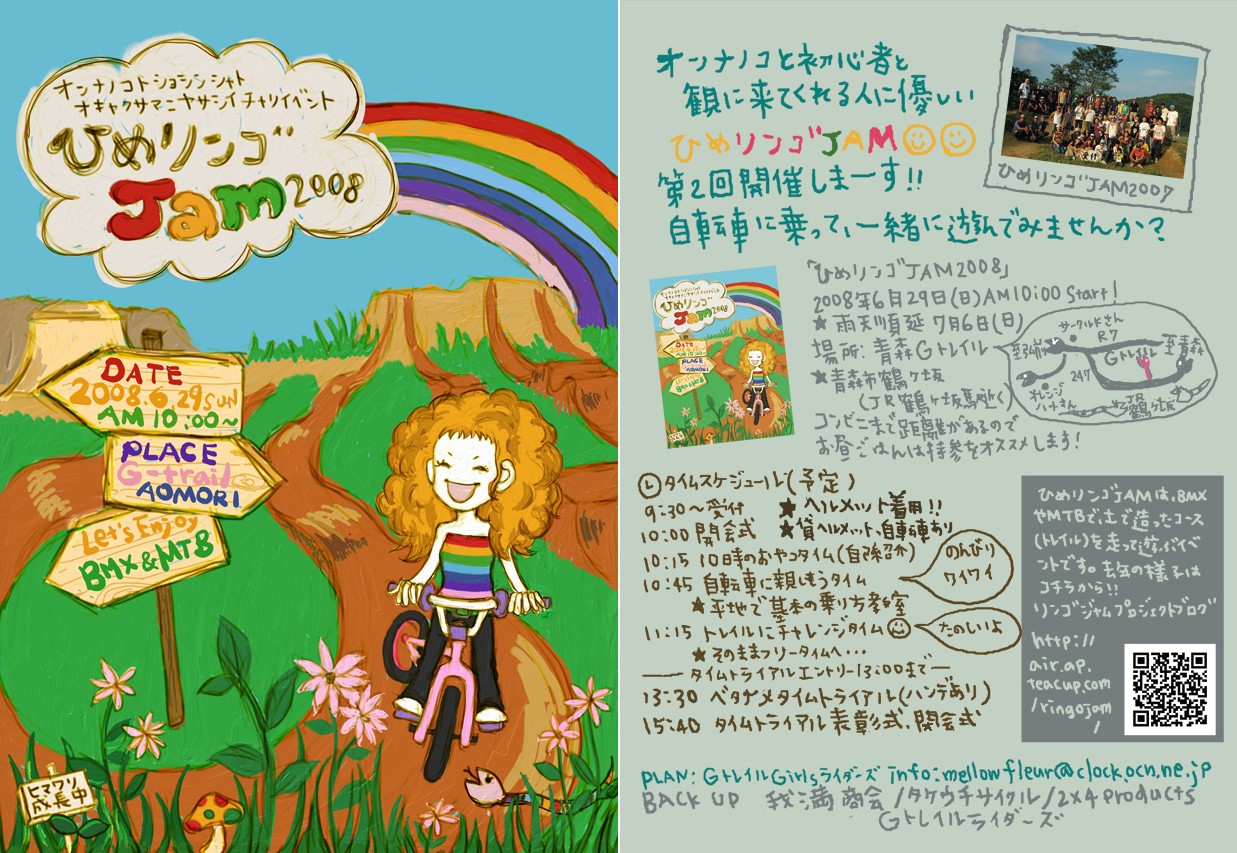 オンナノコトショシンシャト
オキャクサマニヤサシイチャリイベント
ひめリンゴ
Jam 2008
DATE
2008.6.29 SUN
AM 10:00~
PLACE
G-trail
AOMORI
Let's Enjoy
BMX & MTB
ヒマワリ
成長中
オンナノコと初心者と
観に来てくれる人に優しい
ひめリンゴJAM
第2回開催しまーす!!
自転車に乗って、一緒に遊んでみませんか?
ひめリンゴJAM2007
「ひめリンゴJAM2008」
2008年6月29日(日)AM10:00 Start!
★雨天順延 7月6日(日)
場所:青森Gトレイル
★青森市鶴ヶ坂
(JR鶴ヶ坂駅近く)
コンビニまで距離があるので
お昼ごはんは持参をオススメします!
サークルKさん
R7
Gトレイル
至青森
至弘前
247
オレンジ
ハートさん
JR
鶴ヶ坂
タイムスケジュール(予定)
9:30~受付 ★ヘルメット着用!!
10:00 開会式 ★貸ヘルメット、自転車あり
10:15 10時のおやつタイム(自己紹介)
10:45 自転車に親しもうタイム
★平地で基本の乗り方教室
11:15 トレイルにチャレンジタイム
★そのままフリータイムへ・・・
タイムトライアルエントリー13:00まで
13:30 ベタナメタイムトライアル(ハンデあり)
15:40 タイムトライアル表彰式、閉会式
のんびり
ワイワイ
たのしいよ
ひめリンゴJAMは、BMX
やMTBで、土で造ったコース
(トレイル)を走って遊ぶイベ
ントです。去年の様子は
コチラから!!
リンゴジャムプロジェクトブログ
http://
air.ap.
teacup.com
/ringojam
/
PLAN: GトレイルGirlsライダーズ info: mellowfleur@clock.ocn.ne.jp
BACK UP 我満商会/タケウチサイクル/2x4 products
Gトレイルライダーズ